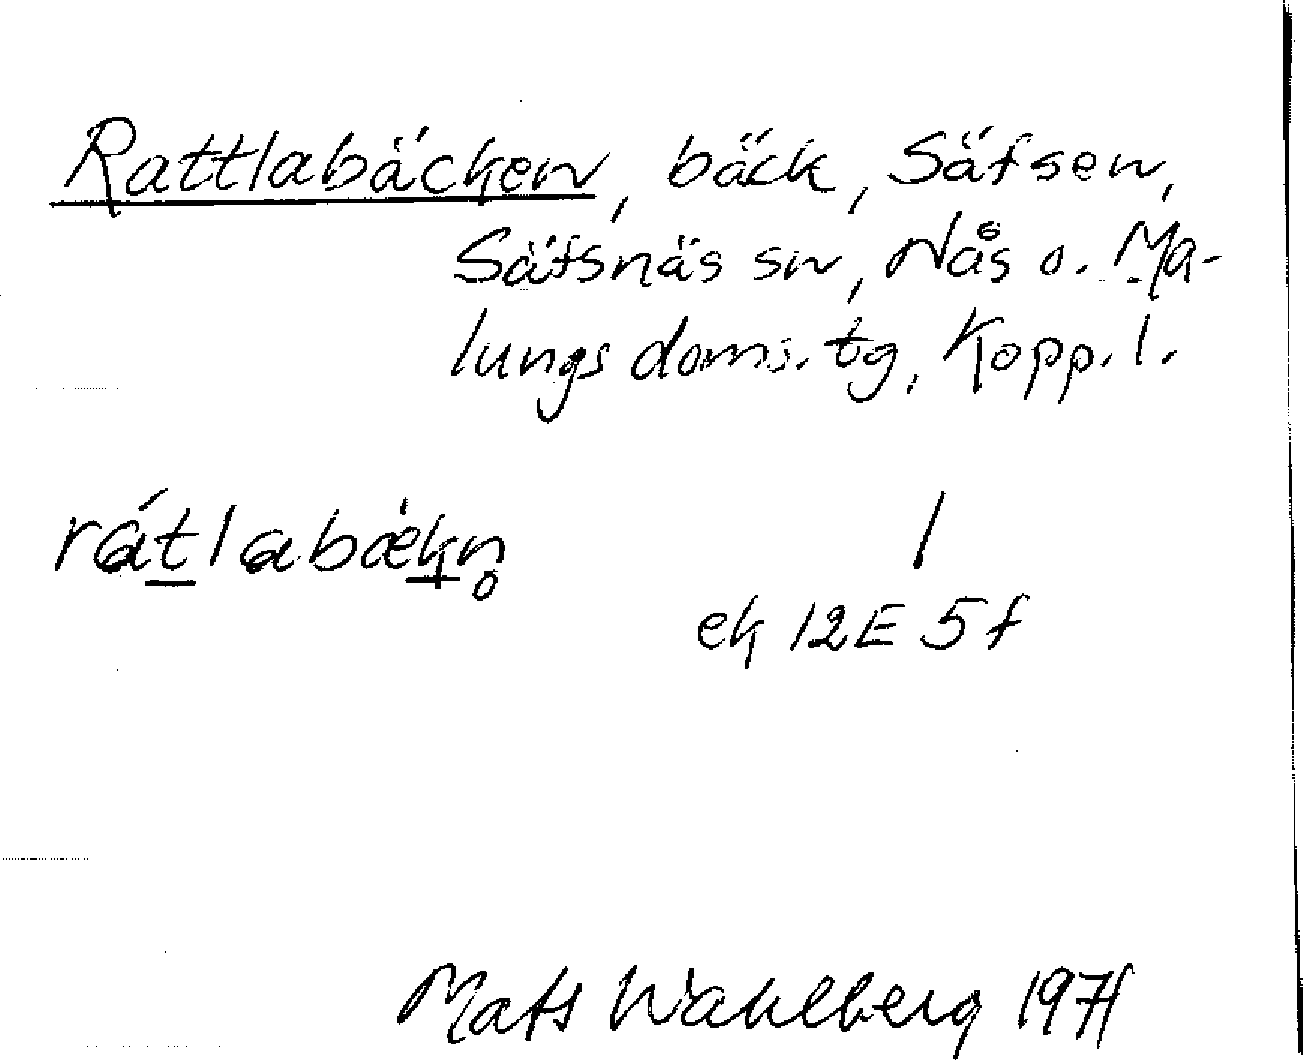 Rattlabäcken, bäck, Säfsen,
Säfsnäs sn, Nås o. Ma-
lungs doms. tg, Kopp. l.
rát̲labæ̀k̲n̥ |
ek 12E 5f
Mats Wahlberg 1971